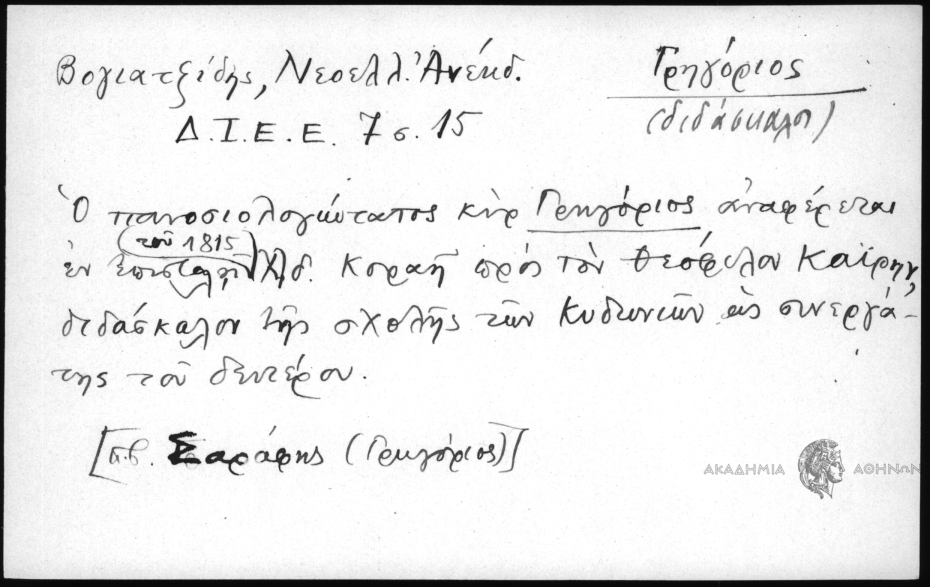 Βογιατζίδης, Νεοελλ. Ἀνέκδ.
Γρηγόριος
Δ.Ι.Ε.Ε. 7 σ. 15
(διδάσκαλοι)
Ὁ πανοσιολογώτατος κὺρ Γρηγόριος ἀναφέρεται
τοῦ 1815
ἐν ἐπιστολῇ Ἀδ. Κοραῆ πρὸς τὸν Θεόφιλον Καΐρην,
διδάσκαλον τῆς σχολῆς τῶν Κυδωνιῶν ὡς συνεργά-
της τοῦ δευτέρου.
[π.β. Σαράφης (Γρηγόριος)]
ΑΚΑΔΗΜΙΑ ΑΘΗΝΩΝ